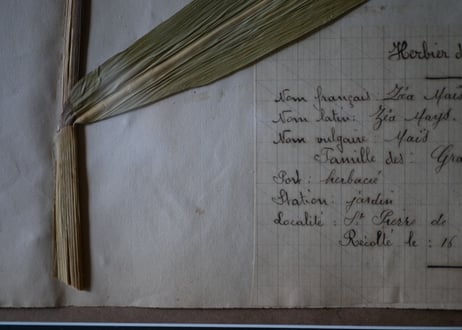 Herbier d
Nom français : Zéa Maïs
Nom latin : Zéa Mays.
Nom vulgaire : Maïs
Famille des : Gra
Port : herbacé
Station : jardin
Localité : St Pierre de
Récolté le : 16